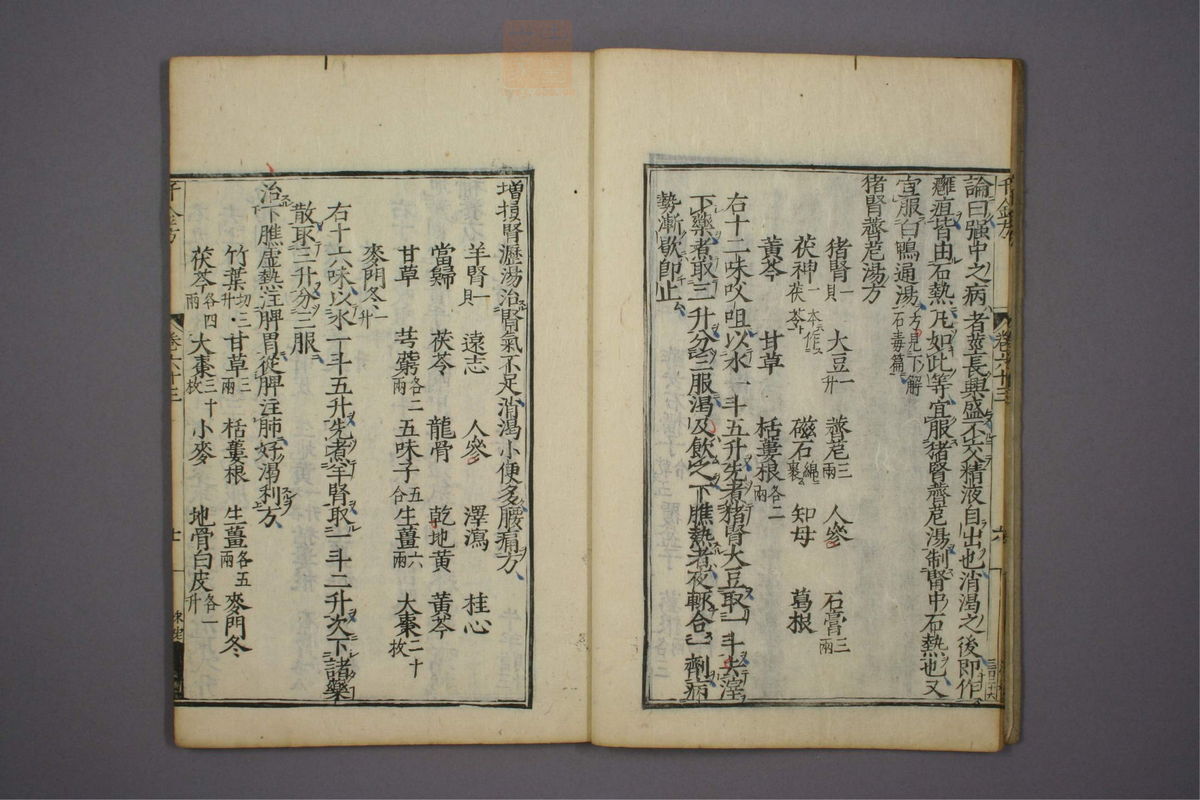 論曰强中之病者莖長興盛不交精液自出也消渴之後即作
癰疽皆由石熱凡如此等宜服猪腎薺苨湯制腎中石熱也又
宜服白鴨通湯方見下解石毒篇
猪腎薺苨湯方
猪腎一具 大豆一升 薺苨三兩 人參 石膏三兩
茯神一本作茯苓 磁石綿裹 知母 葛根
黃芩 甘草 栝蔞根各二兩
右十二味㕮咀以水一斗五升先煮猪腎大豆取一斗去滓
下藥煮取三升分三服渴及飲之下膲熱者夜輒合一劑病
勢漸歇即止
增損腎瀝湯治腎氣不足消渴小便多腰痛方
羊腎一具 遠志 人參 澤瀉 桂心
當歸 茯苓 龍骨 乾地黃 黃芩
甘草 芎藭各二兩 五味子五合 生薑六兩 大棗二十枚
麥門冬一升
右十六味以水一斗五升先煮羊腎取一斗二升次下諸藥
散取三升分三服
治下膲虛熱注脾胃從脾注肺好渴利方
竹葉切三升 甘草三兩 栝蔞根 生薑各五兩 麥門冬
茯苓各四兩 大棗三十枚 小麥 地骨白皮各一升